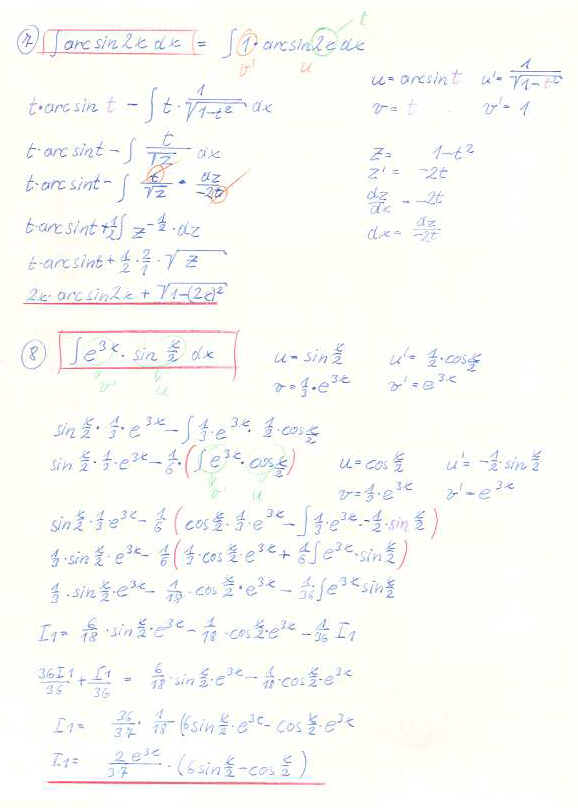 7) ∫ arcsin 2x dx = ∫ 1 · arcsin 2x dx t
v' u
u = arcsin t u' = 1/√(1-t²)
t · arcsin t - ∫ t · 1/√(1-t²) dx v = t v' = 1
t · arcsin t - ∫ t/√z dx z = 1-t²
z' = -2t
t · arcsin t - ∫ t/√z · dz/-2t dz/dx = -2t
t · arcsin t + 1/2 ∫ z^(-1/2) · dz dx = dz/-2t
t · arcsin t + 1/2 · 2/1 · √z
2x · arcsin 2x + √(1-(2x)²)
8) ∫ e^(3x) · sin x/2 dx u = sin x/2 u' = 1/2 · cos x/2
v' u v = 1/3 · e^(3x) v' = e^(3x)
sin x/2 · 1/3 · e^(3x) - ∫ 1/3 · e^(3x) · 1/2 · cos x/2
sin x/2 · 1/3 · e^(3x) - 1/6 · (∫ e^(3x) · cos x/2) u = cos x/2 u' = -1/2 · sin x/2
v' u v = 1/3 · e^(3x) v' = e^(3x)
sin x/2 · 1/3 e^(3x) - 1/6 (cos x/2 · 1/3 · e^(3x) - ∫ 1/3 · e^(3x) · -1/2 · sin x/2)
1/3 · sin x/2 · e^(3x) - 1/6 (1/3 · cos x/2 · e^(3x) + 1/6 ∫ e^(3x) · sin x/2)
1/3 · sin x/2 · e^(3x) - 1/18 · cos x/2 · e^(3x) - 1/36 ∫ e^(3x) sin x/2
I1 = 6/18 · sin x/2 · e^(3x) - 1/18 · cos x/2 · e^(3x) - 1/36 I1
36I1/36 + I1/36 = 6/18 · sin x/2 · e^(3x) - 1/18 · cos x/2 · e^(3x)
I1 = 36/37 · 1/18 (6 sin x/2 · e^(3x) - cos x/2 · e^(3x)
I1 = 2e^(3x)/37 · (6 sin x/2 - cos x/2)